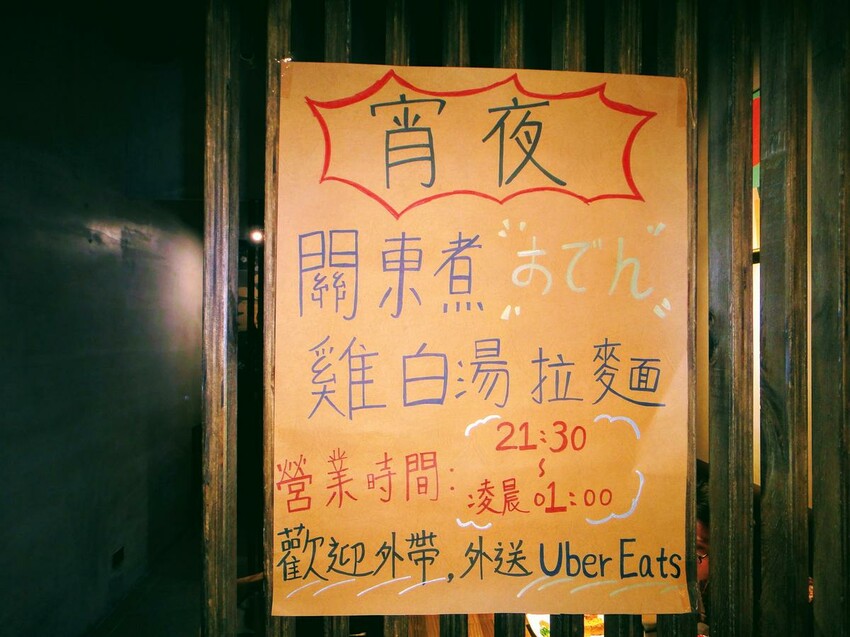 宵夜
關東煮 おでん
雞白湯拉麵
營業時間: 21:30
~
凌晨01:00
歡迎外帶, 外送 Uber Eats